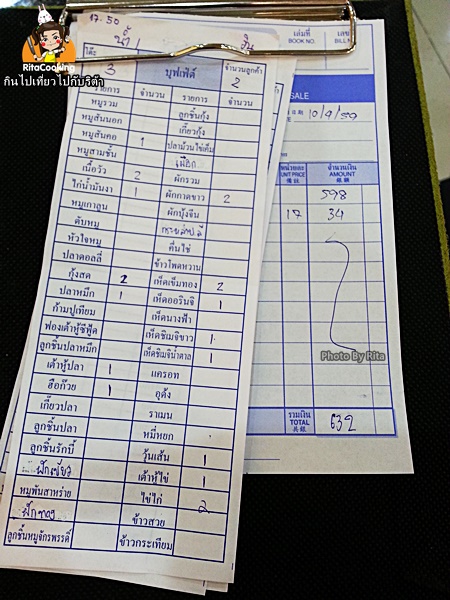 RitaCooking
กินไปเที่ยวไปกับริต้า
17.50
โต๊ะ 3 บุฟเฟ่ต์ จำนวนลูกค้า 2
รายการ จำนวน รายการ จำนวน
หมูรวม ลูกชิ้นกุ้ง
หมูสันนอก เกี๊ยวกุ้ง
หมูสันคอ 1 ปลาม้วนไข่เค็ม
หมูสามชั้น เผือก
เนื้อวัว 2 ผักรวม
ไก่น้ำมันงา 1 ผักกาดขาว 2
หมูเกาลูน ผักบุ้งจีน
ตับหมู
หัวใจหมู คื่นไช่
ปลาดอลลี่ ข้าวโพดหวาน
กุ้งสด 2 เห็ดเข็มทอง 2
ปลาหมึก 1 เห็ดออรินจิ 1
ก้ามปูเทียม เห็ดนางฟ้า
ฟองเต้าหู้ซีฟู้ด เห็ดชิเมจิขาว 1
ลูกชิ้นปลาหมึก เห็ดชิเมจิน้ำตาล 1
เต้าหู้ปลา 1 แครอท
ฮือก๊วย 1 อุด้ง
เกี๊ยวปลา ราเมน
ลูกชิ้นปลา หมี่หยก
ลูกชิ้นรักบี้ วุ้นเส้น 1
เต้าหู้ไข่ 1
หมูพันสาหร่าย ไข่ไก่ 2
ฟักทอง ข้าวสวย
ลูกชิ้นหมูจักรพรรดิ์ ข้าวกระเทียม
เล่มที่
BOOK NO.
เลข
BILL N
SALE
10/9/59
หน่วยละ จำนวนเงิน
UNIT PRICE AMOUNT
598
17 34
Photo By Rita
รวมเงิน
TOTAL 632